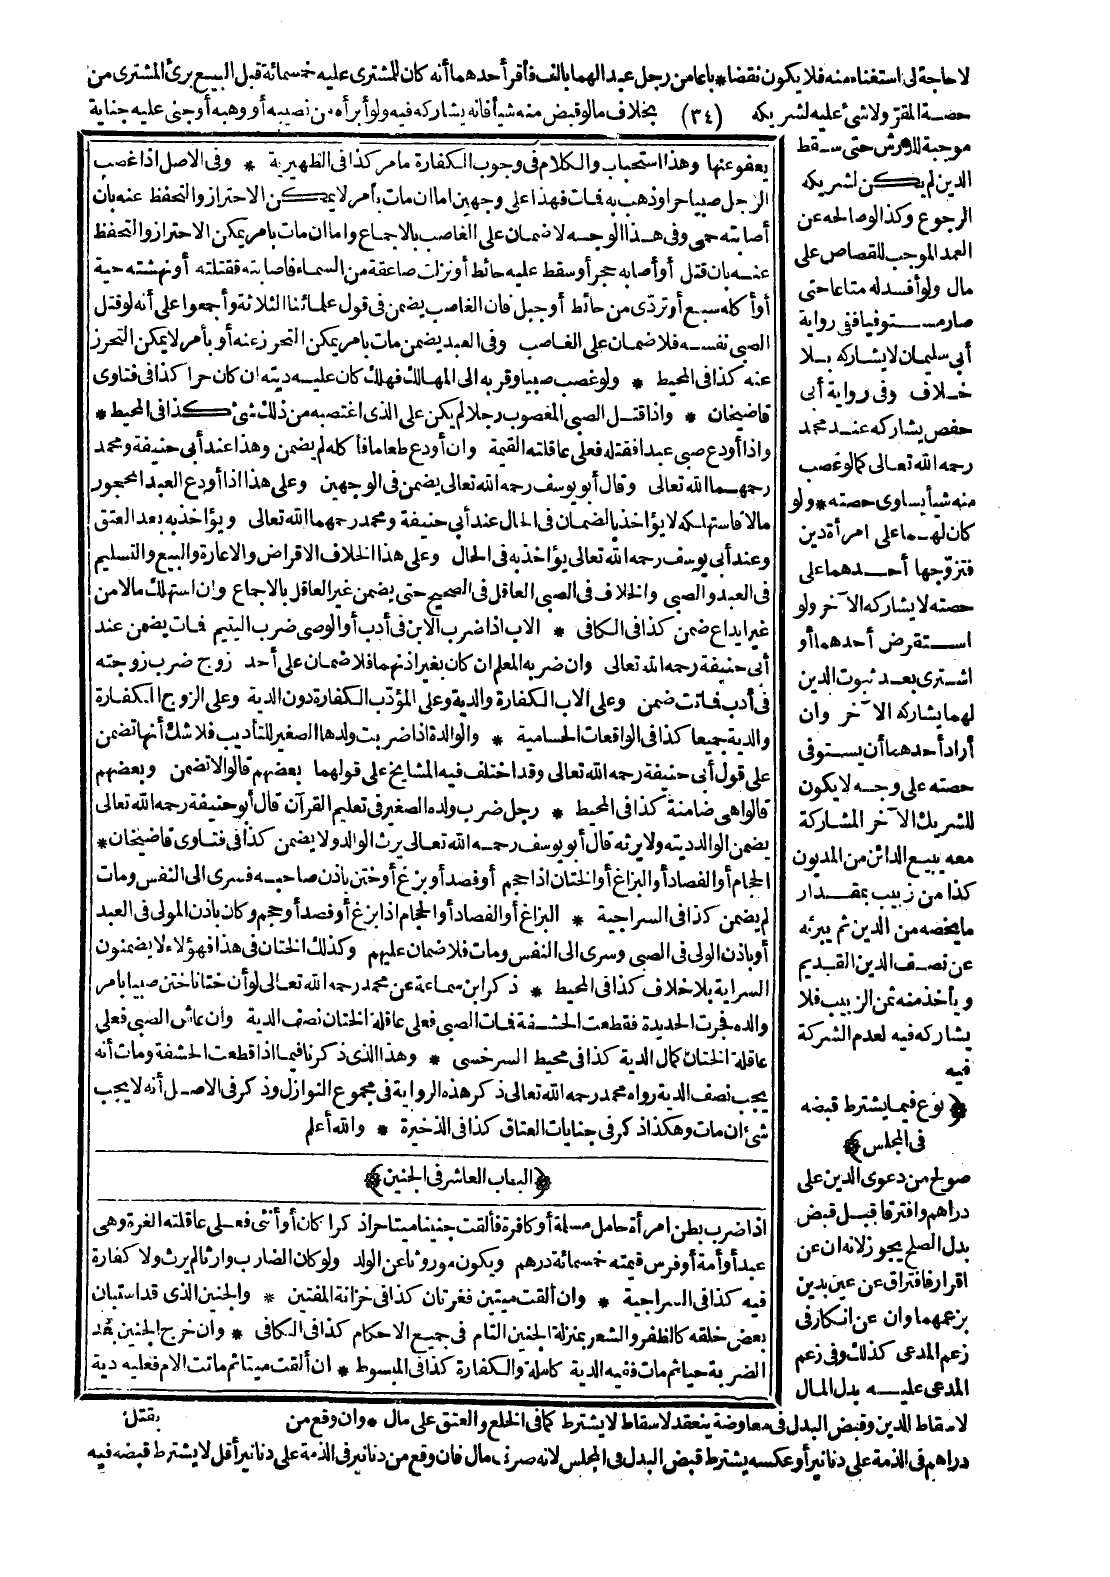 لا حاجة لى استغناء منه فلا يكون نقضا * باعا من رجل عبد الهما بالف فأقر أحدهما أنه كان للمشترى عليه خمسمائة قبل البيع برئ المشترى من
حصة المقر ولا شئ عليه لشريكه (٣٤) بخلاف مالو قبض منه شيأ فانه يشاركه فيه ولو أبرأه من نصيبه أو وهبه أو جنى عليه جناية
موجبة للارش حتى سقط
الدين لم يكن لشريكه
الرجوع وكذا لو صالحه عن
العمد الموجب للقصاص على
مال ولو أفسد له متاعا حتى
صار مستوفيا ففى رواية
أبى سليمان لا يشاركه بلا
خلاف وفى رواية أبى
حفص يشاركه عند محمد
رحمه الله تعالى كما لو غصب
منه شيأ يساوى حصته * ولو
كان لهما على امرأة دين
فتزوجها أحدهما على
حصته لا يشاركه الآخر ولو
استقرض أحدهما أو
اشترى بعد ثبوت الدين
لهما يشاركه الآخر وان
أراد أحدهما أن يستوفى
حصته على وجه لا يكون
للشريك الآخر المشاركة
معه يبيع الدائن من المديون
كذا من زبيب بمقدار
ما يخصه من الدين ثم يبرئه
عن نصف الدين القديم
ويأخذ منه ثمن الزبيب فلا
يشاركه فيه لعدم الشركة
فيه
﴿نوع فيما يشترط قبضه
فى المجلس﴾
صولح من دعوى الدين على
دراهم وافترقا قبل قبض
بدل الصلح يجوز لانه ان عن
اقرار فافتراق عن عين بدين
بزعمهما وان عن انكار فى
زعم المدعى كذلك وفى زعم
المدعى عليه بدل المال
لاسقاط الدين وقبض البدل فى معاوضة ينعقد لاسقاط لا يشترط كما فى الخلع والعتق على مال * وان وقع من
دراهم فى الذمة على دنانير أو عكسه يشترط قبض البدل فى المجلس لانه صرف مال فان وقع من دنانير فى الذمة على دنانير أقل لا يشترط قبضه فيه
يعفو عنها وهذا استحباب والكلام فى وجوب الكفارة ما مر كذا فى الظهيرية * وفى الاصل اذا غصب
الرجل صبيا حرا وذهب به فمات فهذا على وجهين اما ان مات بأمر لا يمكن الاحتراز والتحفظ عنه بأن
أصابته حمى وفى هذا الوجه لا ضمان على الغاصب بالاجماع واما ان مات بأمر يمكن الاحتراز والتحفظ
عنه بان قتل أو أصابه حجر أو سقط عليه حائط أو نزلت صاعقة من السماء فأصابته فقتلته أو نهشته حية
أو أكله سبع أو تردى من حائط أو جبل فان الغاصب يضمن فى قول علمائنا الثلاثة وأجمعوا على أنه لو قتل
الصبى نفسه فلا ضمان على الغاصب وفى العبد يضمن مات بامر يمكن التحرز عنه أو بأمر لا يمكن التحرز
عنه كذا فى المحيط * ولو غصب صبيا وقربه الى المهالك فهلك كان عليه ديته ان كان حرا كذا فى فتاوى
قاضيخان * واذا قتل الصبى المغصوب رجلا لم يكن على الذى اغتصبه من ذلك شئ كذا فى المحيط *
واذا أودع صبى عبدا فقتله فعلى عاقلته القيمة وان أودع طعاما فأكله لم يضمن وهذا عند أبى حنيفة ومحمد
رحمهما الله تعالى وقال أبو يوسف رحمه الله تعالى يضمن فى الوجهين وعلى هذا اذا أودع العبد المحجور
مالا فاستهلكه لا يؤاخذ بالضمان فى الحال عند أبى حنيفة ومحمد رحمهما الله تعالى ويؤاخذ به بعد العتق
وعند أبى يوسف رحمه الله تعالى يؤاخذ به فى الحال وعلى هذا الخلاف الاقراض والاعارة والبيع والتسليم
فى العبد والصبى والخلاف فى الصبى العاقل فى الصحيح حتى يضمن غير العاقل بالاجماع وان استهلك مالا من
غير ايداع ضمن كذا فى الكافى * الاب اذا ضرب الابن فى أدب أو الوصى ضرب اليتيم فمات يضمن عند
أبى حنيفة رحمه الله تعالى وان ضربه المعلم ان كان بغير اذنهما فلا ضمان على أحد زوج ضرب زوجته
فى أدب فماتت ضمن وعلى الاب الكفارة والدية وعلى المؤدب الكفارة دون الدية وعلى الزوج الكفارة
والدية جميعا كذا فى الواقعات الحسامية * والوالدة اذا ضربت ولدها الصغير للتأديب فلا شك أنها تضمن
على قول أبى حنيفة رحمه الله تعالى وقد اختلف فيه المشايخ على قولهما بعضهم قالوا لا تضمن وبعضهم
قالوا هى ضامنة كذا فى المحيط * رجل ضرب ولده الصغير فى تعليم القرآن قال أبو حنيفة رحمه الله تعالى
يضمن الوالد ديته ولا يرثه قال أبو يوسف رحمه الله تعالى يرث الوالد ولا يضمن كذا فى فتاوى قاضيخان *
الحجام أو الفصاد أو البزاغ أو الختان اذا حجم أو فصد أو بزغ أو ختن باذن صاحبه فسرى الى النفس ومات
لم يضمن كذا فى السراجية * البزاغ أو الفصاد أو الحجام اذا بزغ أو فصد أو حجم وكان باذن المولى فى العبد
أو باذن الولى فى الصبى وسرى الى النفس ومات فلا ضمان عليهم وكذلك الختان فى هذا فهؤلاء لا يضمنون
السراية بلا خلاف كذا فى المحيط * ذكر ابن سماعة عن محمد رحمه الله تعالى لو أن ختانا ختن صبيا بامر
والده فجرت الحديدة فقطعت الحشفة فمات الصبى فعلى عاقلة الختان نصف الدية وان عاش الصبى فعلى
عاقلة الختان كمال الدية كذا فى محيط السرخسى * وهذا الذى ذكرنا فيما اذا قطعت الحشفة ومات أنه
يجب نصف الدية رواه محمد رحمه الله تعالى ذكر هذه الرواية فى مجموع النوازل وذكر فى الاصل أنه لا يجب
شئ ان مات وهكذا ذكر فى جنايات العتاق كذا فى الذخيرة * والله أعلم
﴿الباب العاشر فى الجنين﴾
اذا ضرب بطن امرأة حامل مسلمة أو كافرة فألقت جنينا ميتا حرا ذكرا كان أو أنثى فعلى عاقلته الغرة وهى
عبد أو أمة أو فرس قيمته خمسمائة درهم ويكون موروثا عن الولد ولو كان الضارب وارثا لم يرث ولا كفارة
فيه كذا فى السراجية * وان ألقت ميتين فغرتان كذا فى خزانة المفتين * والجنين الذى قد استبان
بعض خلقه كالظفر والشعر بمنزلة الجنين التام فى جميع الاحكام كذا فى الكافى * وان خرج الجنين بعد
الضربة حيا ثم مات ففيه الدية كاملة والكفارة كذا فى المبسوط * ان ألقت ميتا ثم ماتت الام فعليه دية
بقتل